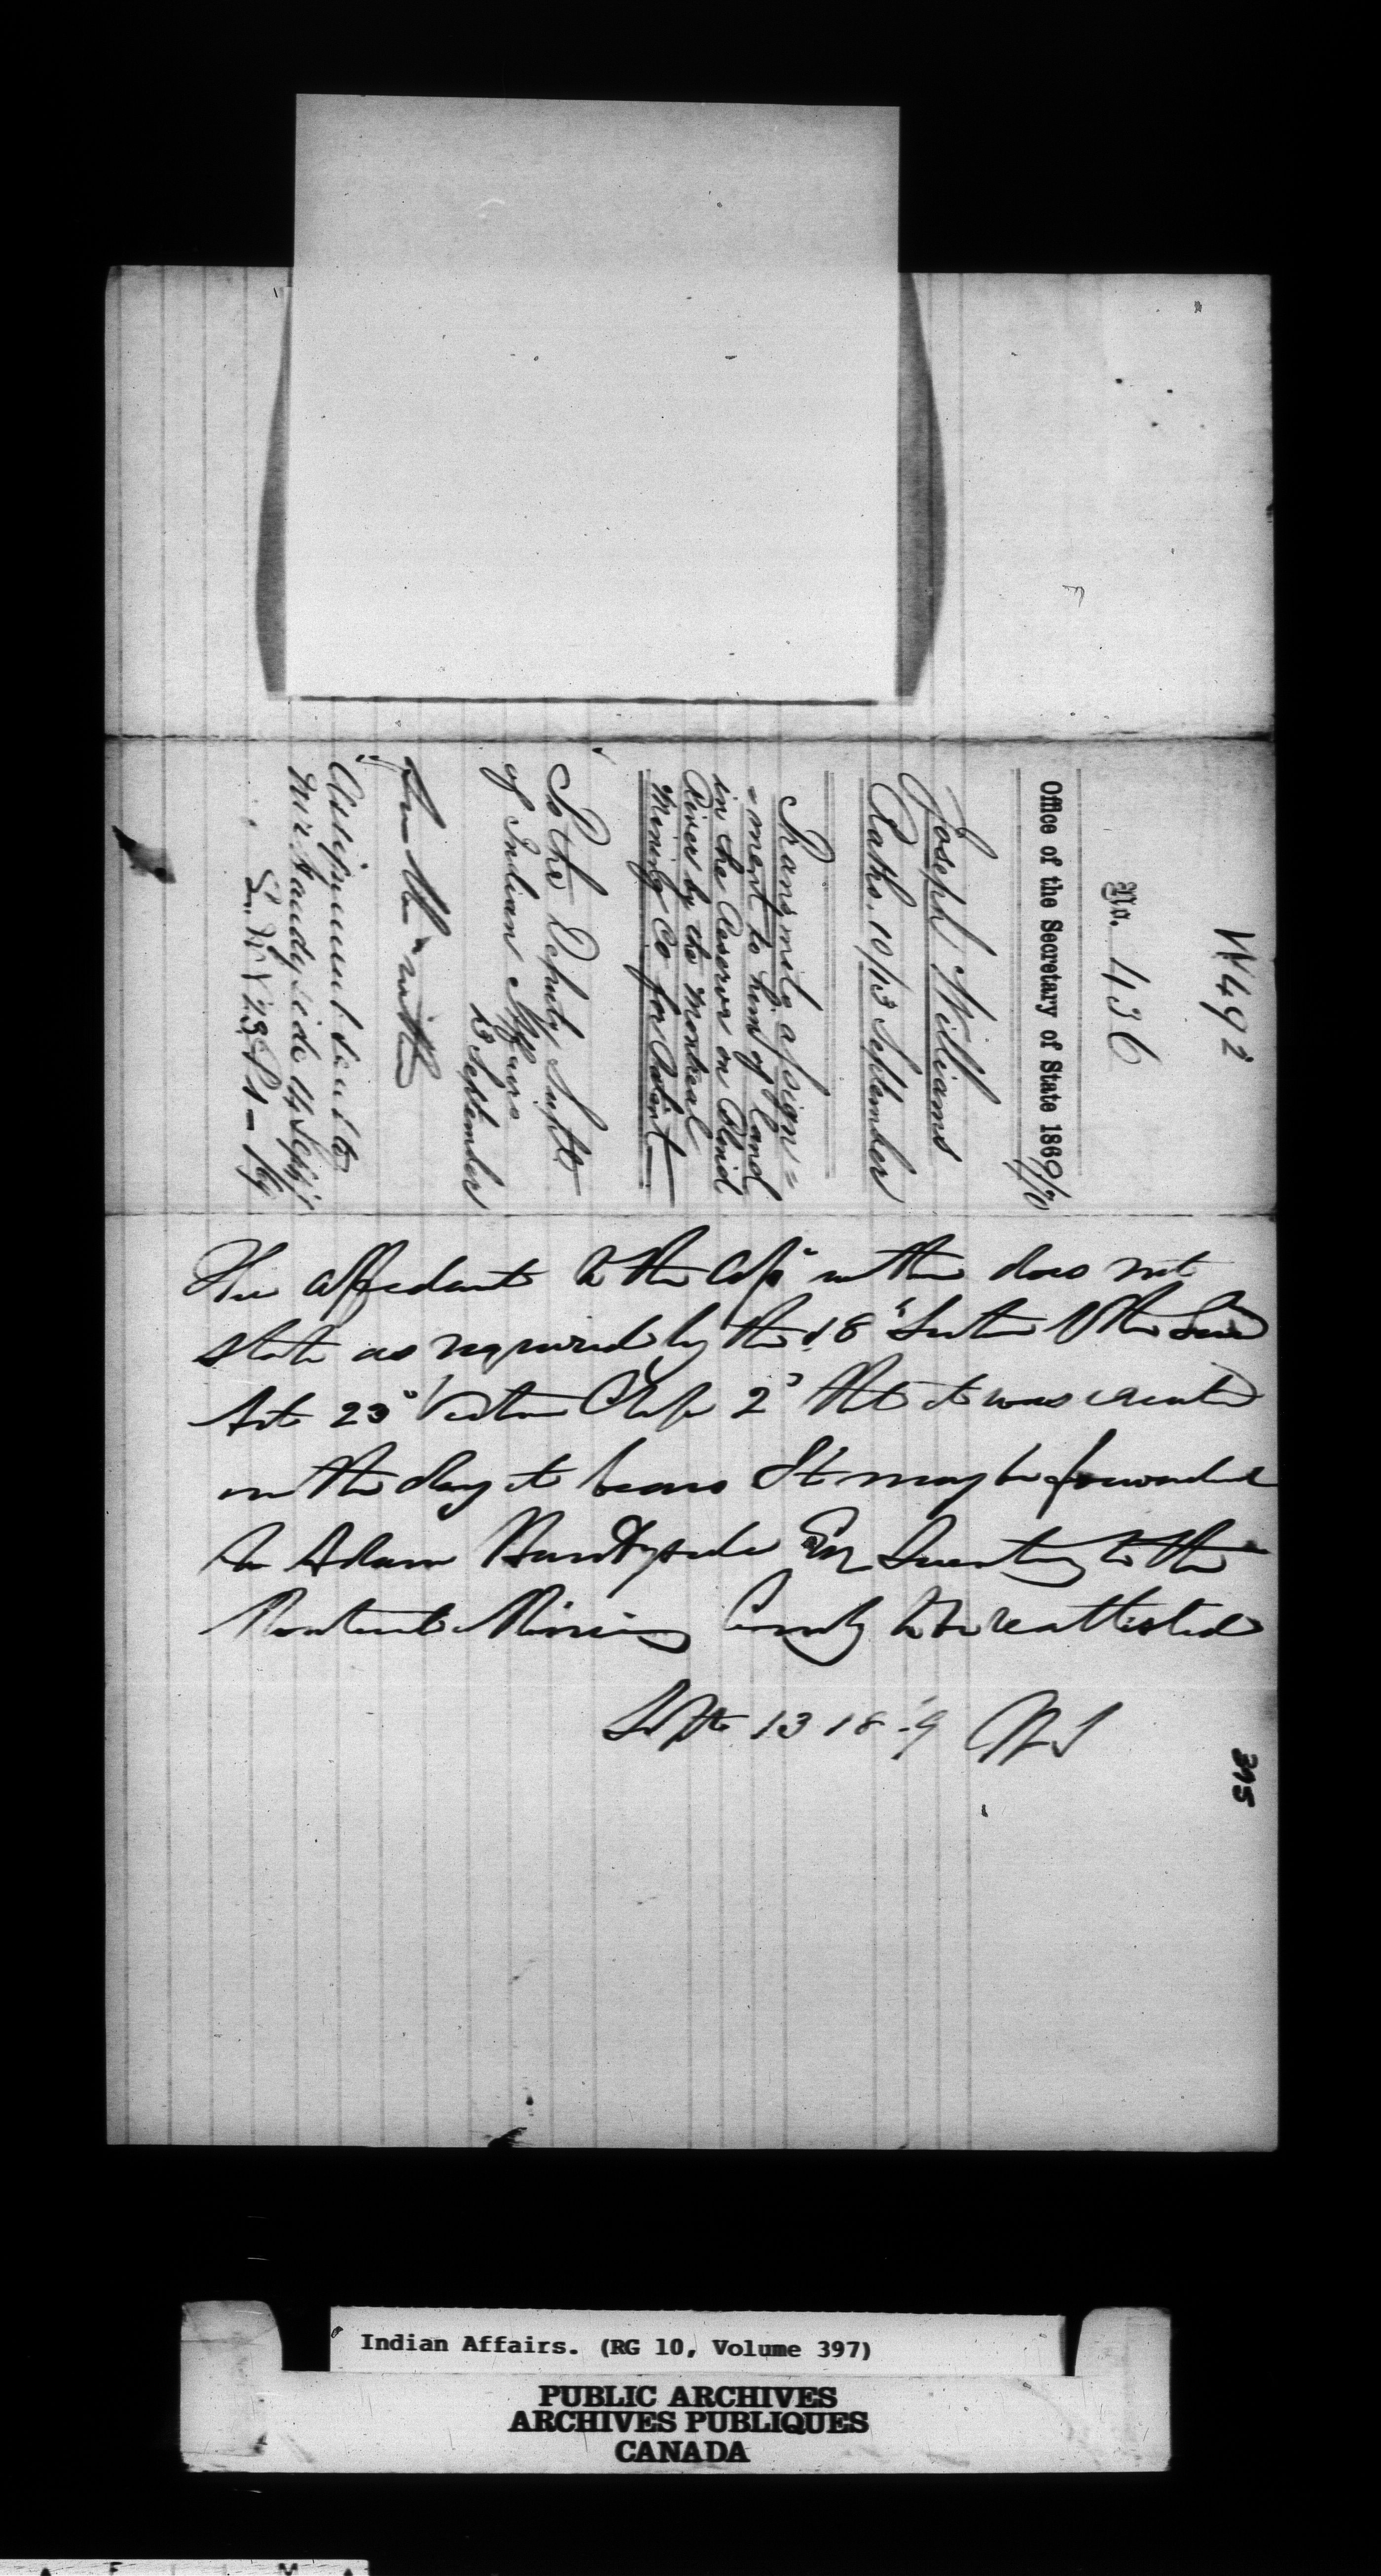 W 492
No. 436
Office of the Secretary of State 1869/70
Joseph Williams
10/13 September
Transmits assign=
=ment to him of land
in the Reserve on
River by the Montreal
Mining Co for Patent
To the Deputy Supt
of Indian Affairs
13 September
Assignment sent to
Mr Handyside 14 Sept
The affidavit to the within does not
state as required by the 18" Section of the
Act 23 Victoria Chap 2 that it was executed
on the day it bears It may be forwarded
to Adam Handyside Esq Secretary to the
Montreal Mining Compy to be reattested
Sepr 13 18 9
395
Indian Affairs. (RG 10, Volume 397)
PUBLIC ARCHIVES
ARCHIVES PUBLIQUES
CANADA